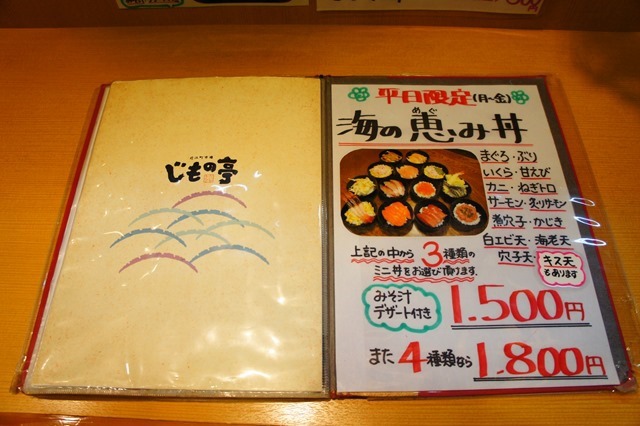 じもの亭
平日限定(月~金)
海の恵み丼
めぐ
まぐろ・ぶり
いくら・甘えび
カニ・ねぎトロ
サーモン・炙りサーモン
煮穴子・かじき
白エビ天・海老天
穴子天・
キス天
もあります
上記の中から3種類の
ミニ丼をお選び頂けます。
みそ汁
デザート付き
1.500円
また4種類なら1.800円